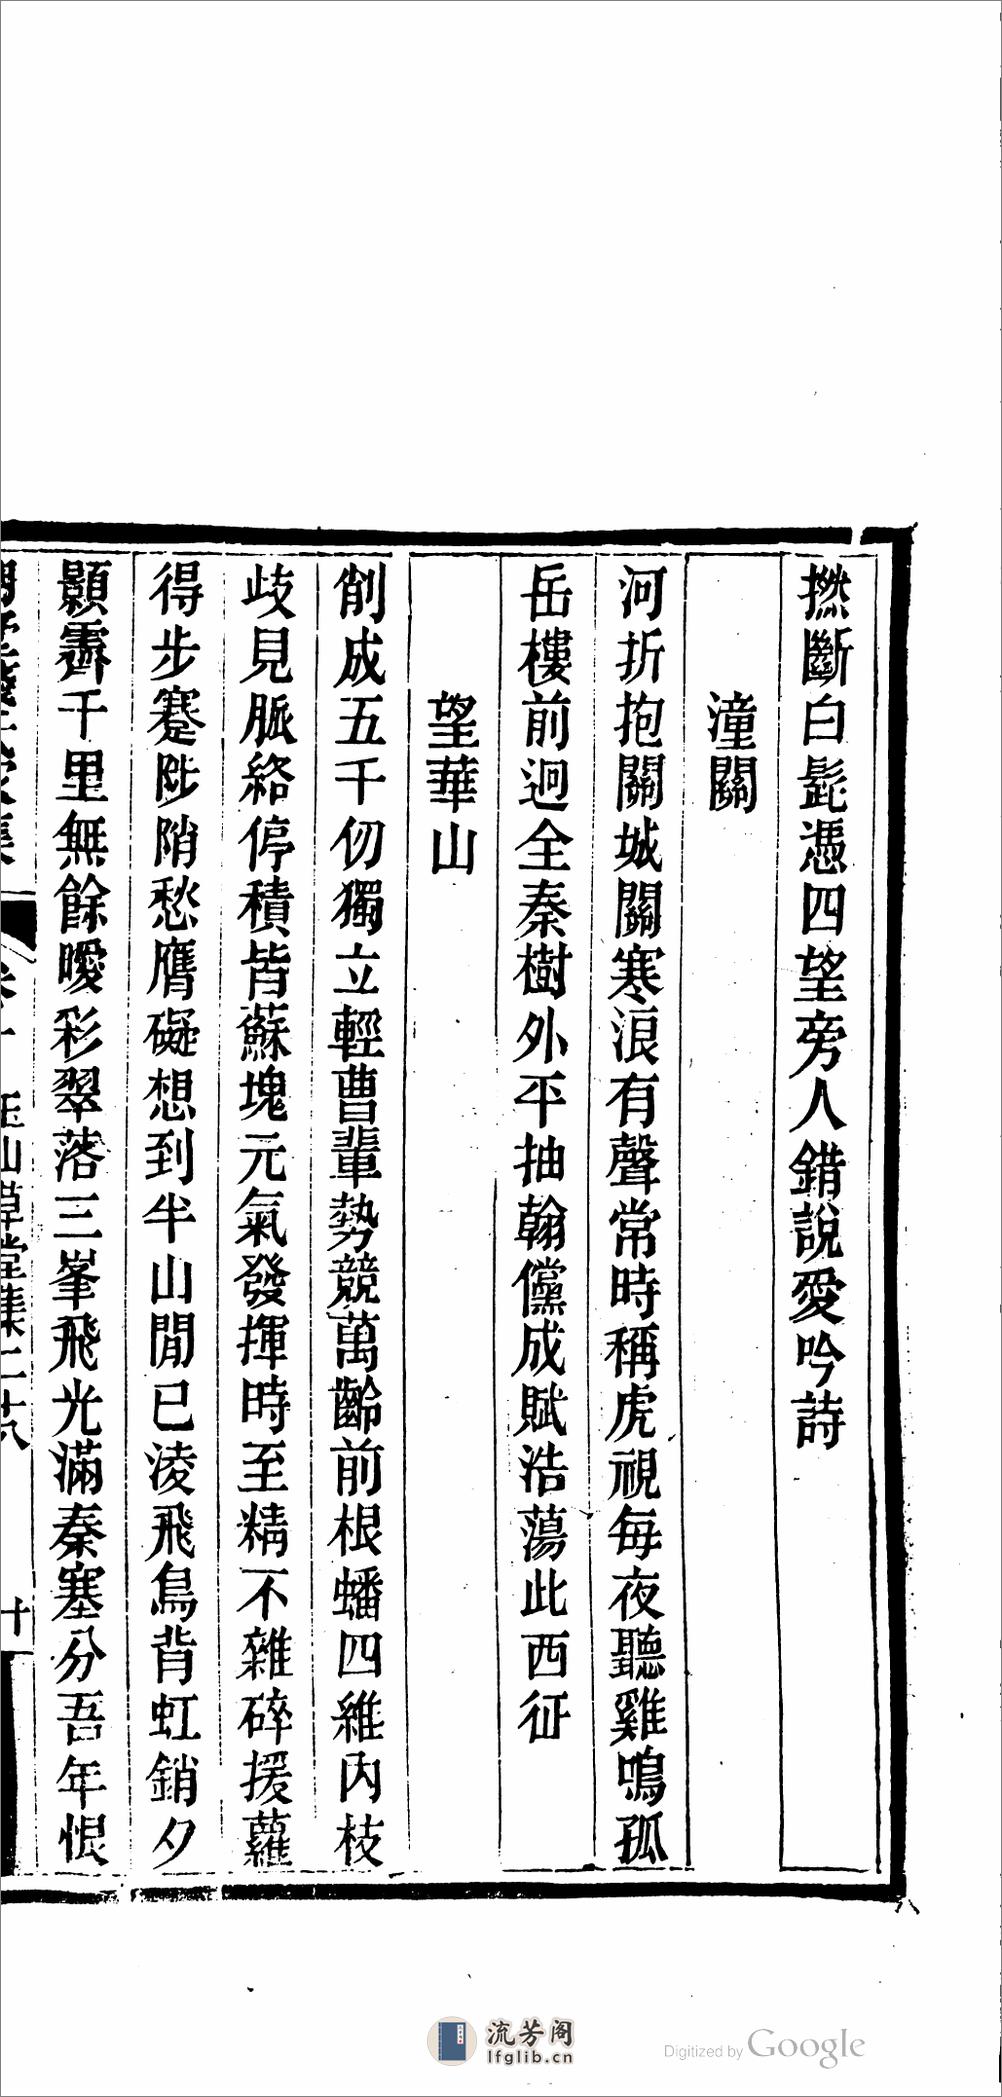 撚斷白髭憑四望旁人錯說愛吟詩
潼關
河折抱關城關寒浪有聲常時稱虎視每夜聽雞鳴孤
岳樓前迥全秦樹外平抽翰儻成賦浩蕩此西征
望華山
削成五千仞獨立輕曹輩勢競萬齡前根蟠四維內枝
歧見脈絡停積皆蘇塊元氣發揮時至精不雜碎援蘿
得步蹇陟陗愁膺礙想到半山閒已淩飛鳥背虹銷夕
顥霽千里無餘曖彩翠落三峯飛光滿秦塞分吾年恨
玉山草堂集二十八
十
流芳阁
lfglib.cn
Digitized by Google